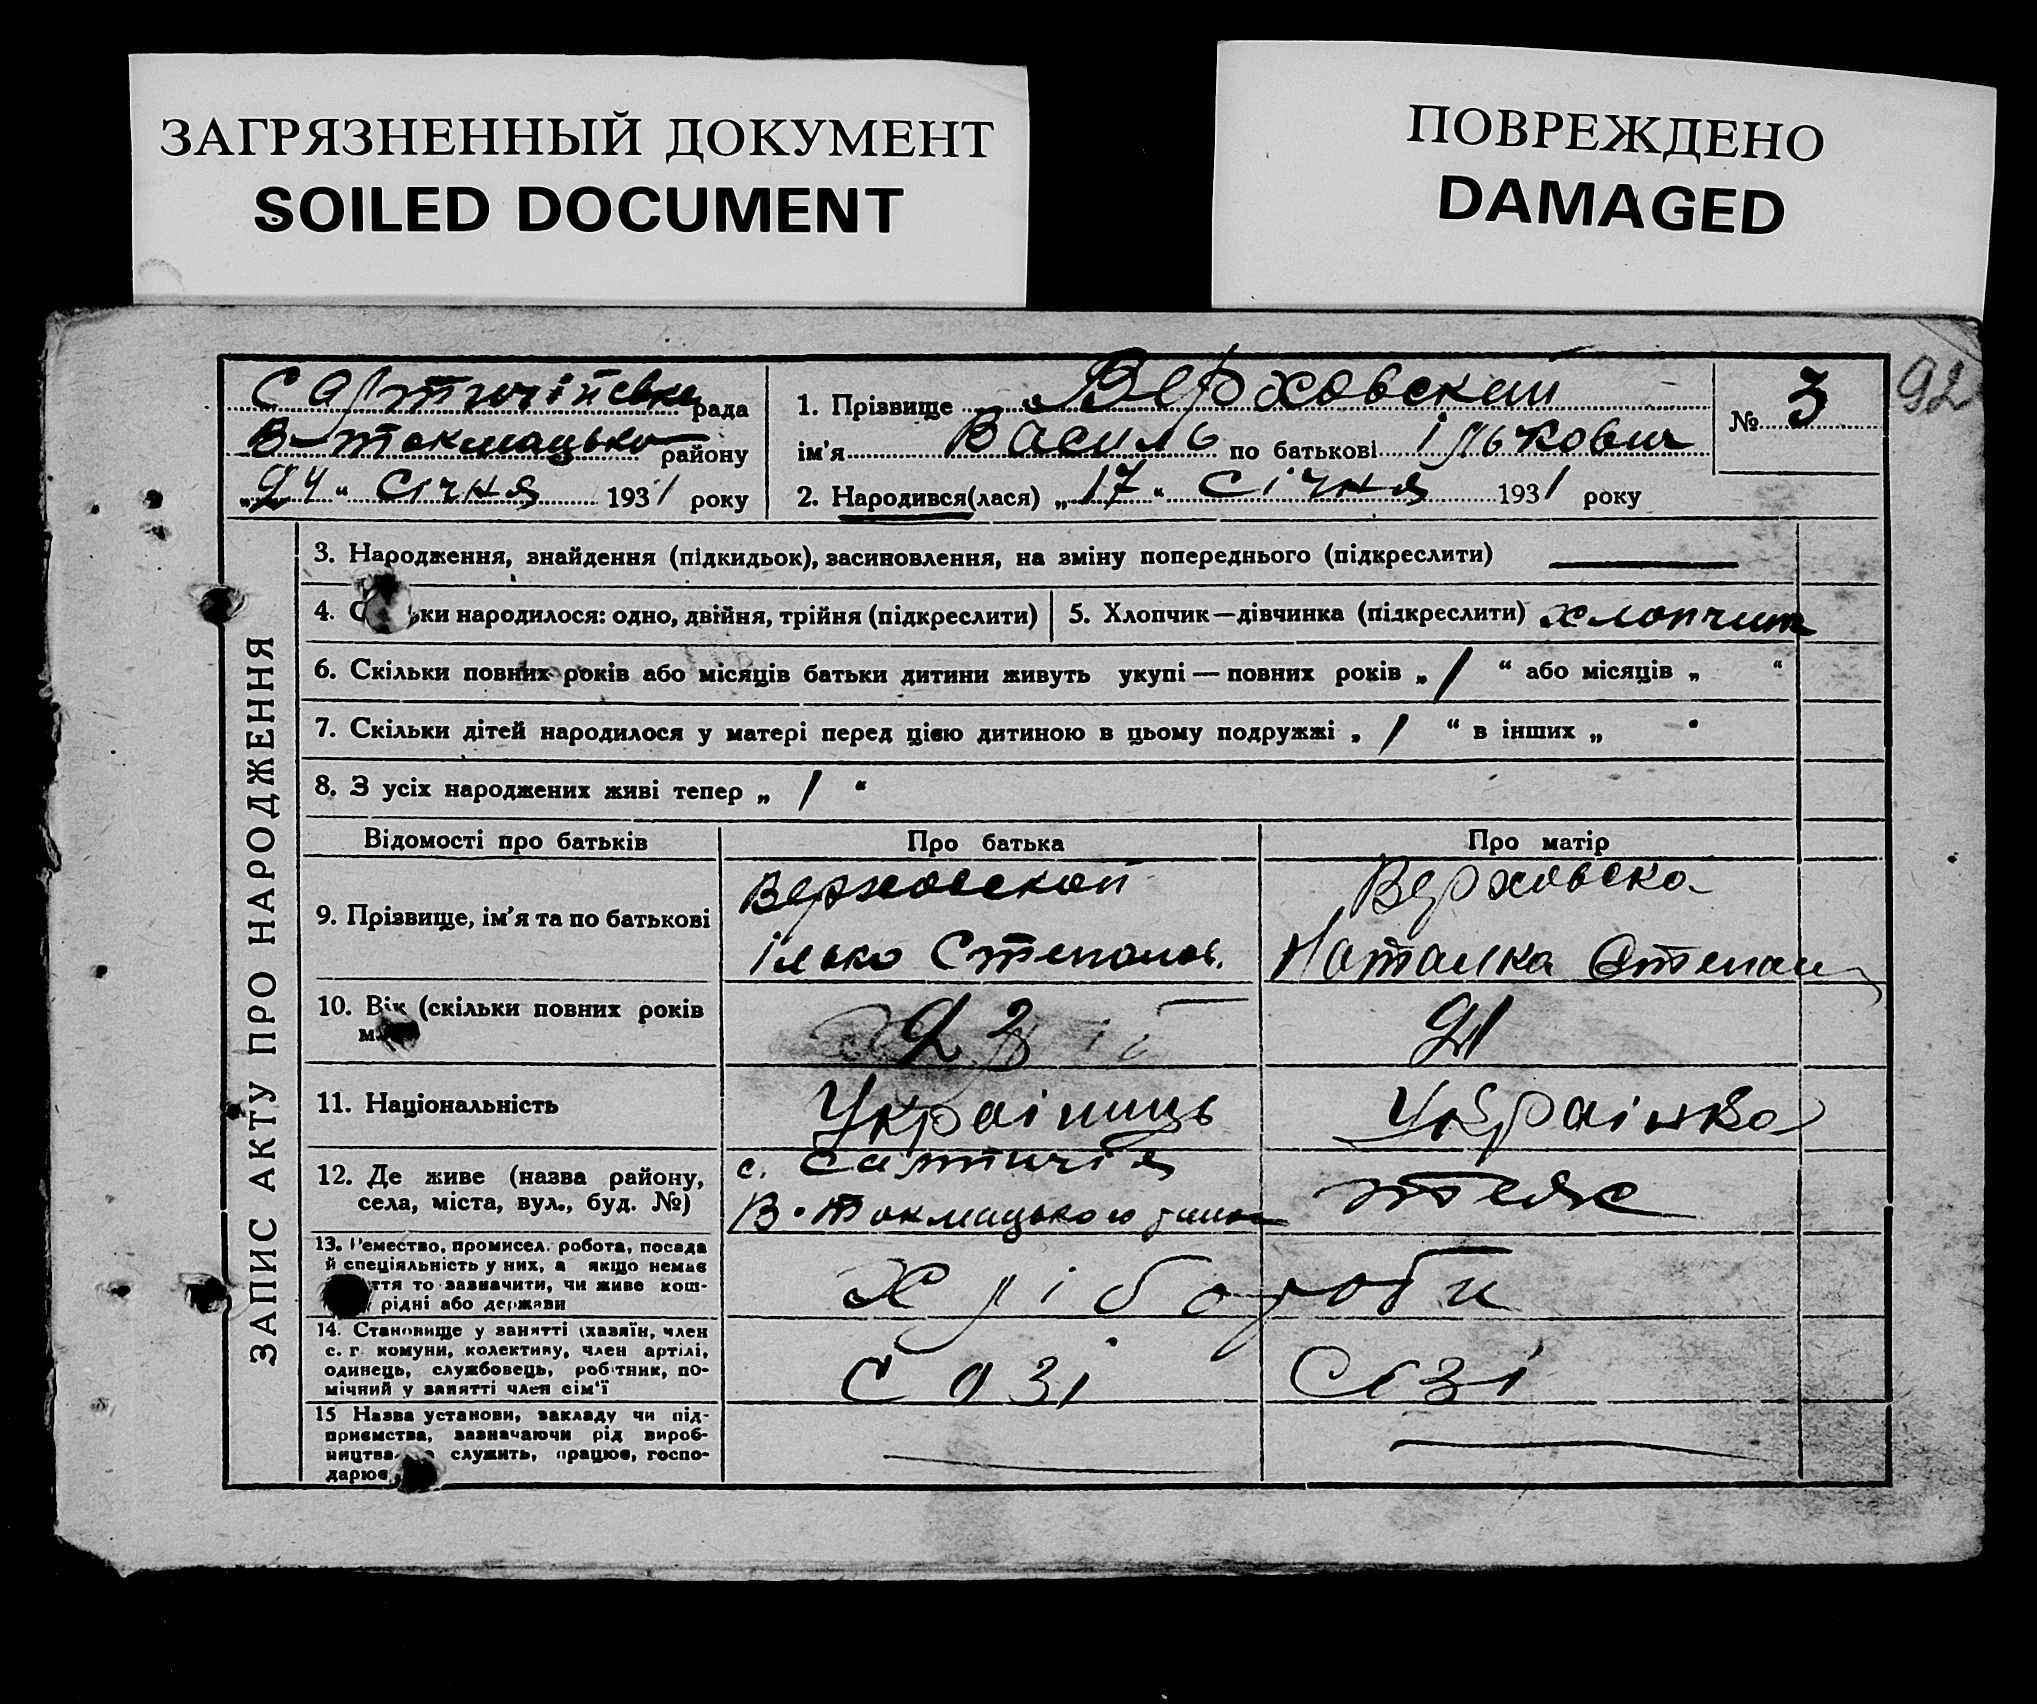 ЗАГРЯЗНЕННЫЙ ДОКУМЕНТ
SOILED DOCUMENT
ПОВРЕЖДЕНО
DAMAGED
92
рада
В-Токмацько району
„24“ Січня 1931 року
1. Прізвище Верховский
ім'я Василь по батькові Ількович
2. Народився(лася) „17“ Січня 1931 року
№ 3
ЗАПИС АКТУ ПРО НАРОДЖЕННЯ
3. Народження, знайдення (підкидьок), засиновлення, на зміну попереднього (підкреслити)
4. С ьки народилося: одно, двійня, трійня (підкреслити)
5. Хлопчик—дівчинка (підкреслити) хлопчик
6. Скільки повних років або місяців батьки дитини живуть укупі — повних років „1“ або місяців „ “
7. Скільки дітей народилося у матері перед цією дитиною в цьому подружжі „1“ в інших „ “
8. З усіх народжених живі тепер „1“
Відомості про батьків Про батька Про матір
9. Прізвище, ім'я та по батькові
Верховской
Ілько Степанов.
Верховска
Наталка Степан
10. Вік (скільки повних років
м
23
21
11. Національність
Українць
Українка
12. Де живе (назва району,
села, міста, вул., буд. №)
с.
В-Токмацького району
теж
13. Ремество, промисел, робота, посада
й спеціяльність у них, а якщо немає
ття то зазначити, чи живе кош-
рідні або держави
Хлібороби
14. Становище у занятті (хазяїн, член
с.-г. комуни, колективу, член артілі,
одинець, службовець, робітник, по-
мічний у занятті член сім'ї
Созі
Созі
15 Назва установи, закладу чи під-
приємства, зазначаючи рід вироб-
ництва служить, працює, госпо-
дарює